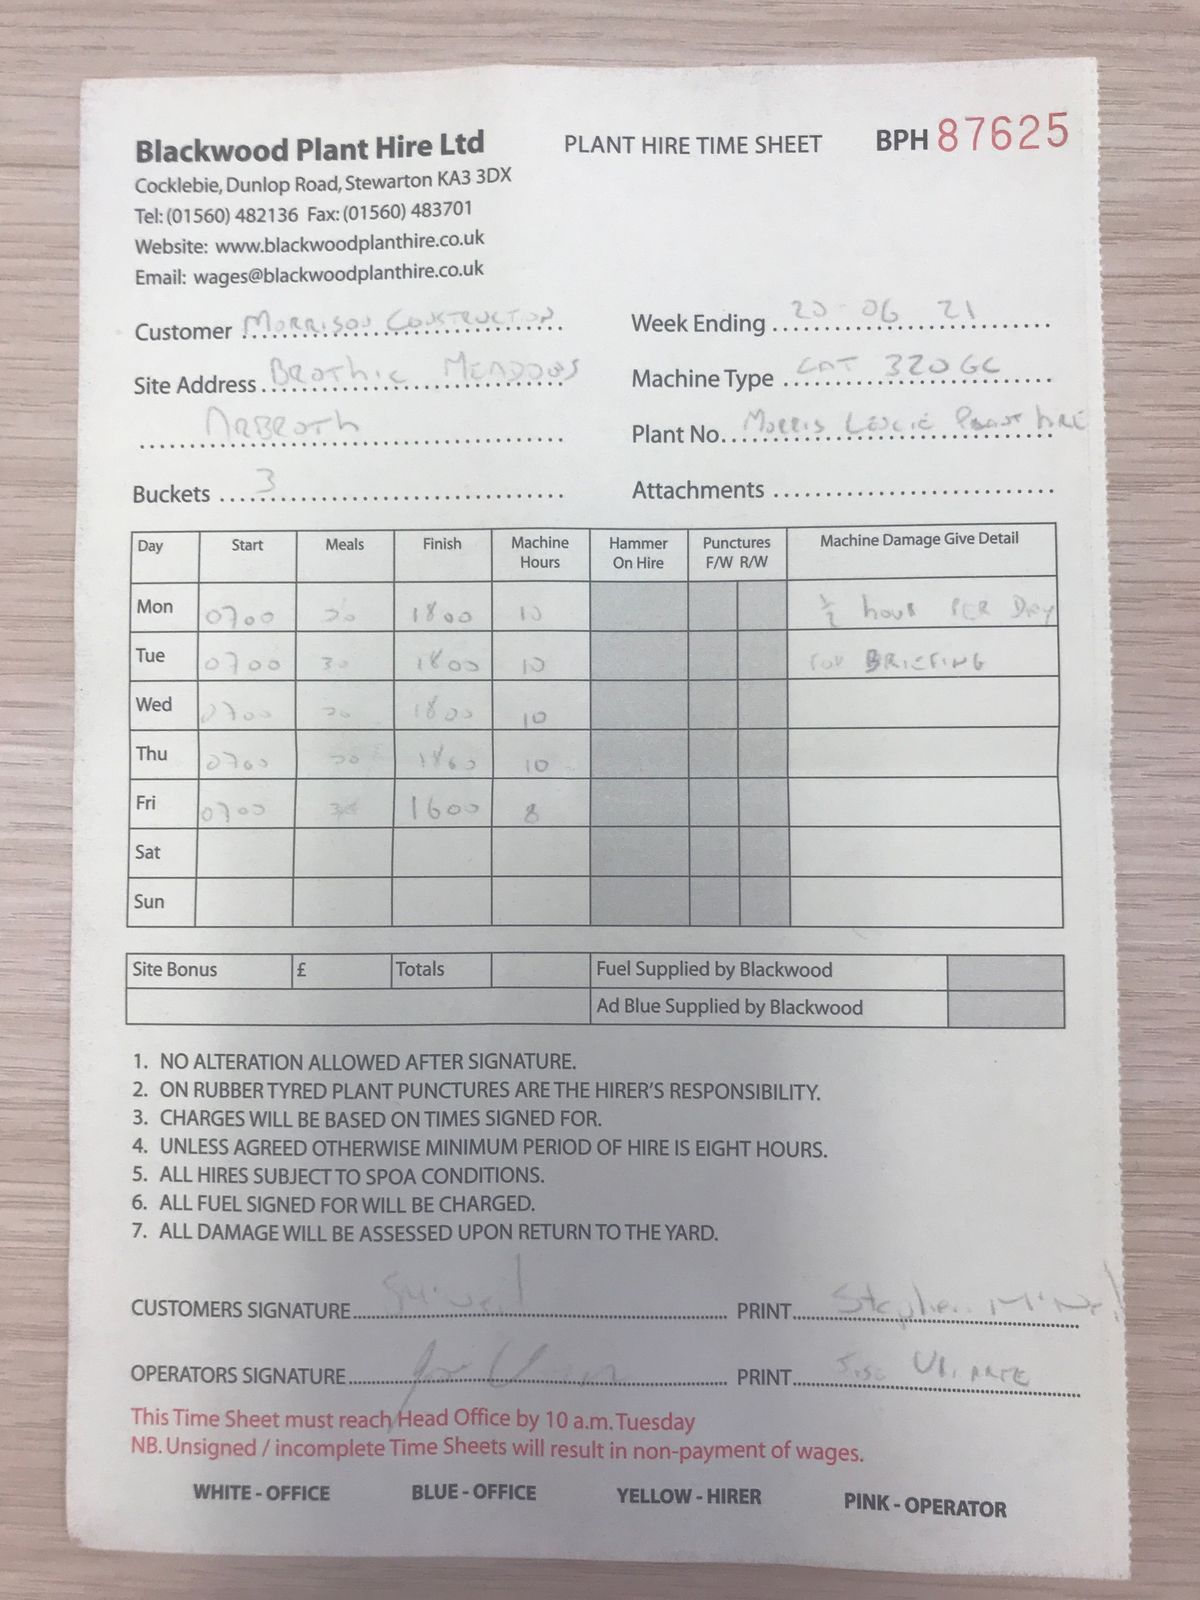 Blackwood Plant Hire Ltd
PLANT HIRE TIME SHEET
BPH 87625
Cocklebie, Dunlop Road, Stewarton KA3 3DX
Tel: (01560) 482136 Fax: (01560) 483701
Website: www.blackwoodplanthire.co.uk
Email: wages@blackwoodplanthire.co.uk
Customer MORRISON CONSTRUCTION
Week Ending 20-06 21
Site Address BROTHIC MEADOWS
Machine Type CAT 320GC
ARBROTH
Plant No. MORRIS LESLIE PLANT HIRE
Buckets 3
Attachments
Day Start Meals Finish Machine Hours Hammer On Hire Punctures F/W R/W Machine Damage Give Detail
Mon 0700 30 1800 10 ½ hour PER DAY
Tue 0700 30 1800 10 FOR BRIEFING
Wed 0700 30 1800 10
Thu 0700 30 1800 10
Fri 0700 30 1600 8
Sat
Sun
Site Bonus £ Totals Fuel Supplied by Blackwood
Ad Blue Supplied by Blackwood
1. NO ALTERATION ALLOWED AFTER SIGNATURE.
2. ON RUBBER TYRED PLANT PUNCTURES ARE THE HIRER'S RESPONSIBILITY.
3. CHARGES WILL BE BASED ON TIMES SIGNED FOR.
4. UNLESS AGREED OTHERWISE MINIMUM PERIOD OF HIRE IS EIGHT HOURS.
5. ALL HIRES SUBJECT TO SPOA CONDITIONS.
6. ALL FUEL SIGNED FOR WILL BE CHARGED.
7. ALL DAMAGE WILL BE ASSESSED UPON RETURN TO THE YARD.
CUSTOMERS SIGNATURE PRINT Stephen
OPERATORS SIGNATURE PRINT
This Time Sheet must reach Head Office by 10 a.m. Tuesday
NB. Unsigned / incomplete Time Sheets will result in non-payment of wages.
WHITE - OFFICE BLUE - OFFICE YELLOW - HIRER PINK - OPERATOR